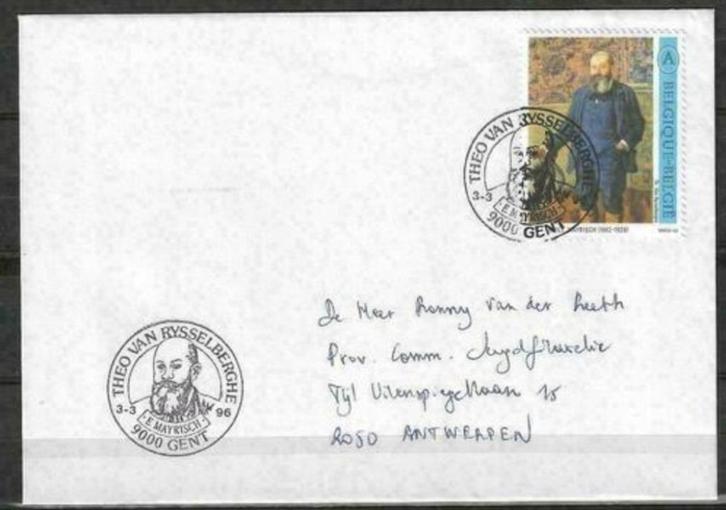 A BELGIQUE-BELGIË
MAYRISCH (1862-1928)
THEO VAN RYSSELBERGHE
3-3
E. MAYRISCH
9000 GENT
De Heer Ronny van der
Prov. Comm. Jeugdfilatelie
Tijl Uilenspiegellaan 15
2050 ANTWERPEN
THEO VAN RYSSELBERGHE
3-3 96
E. MAYRISCH
9000 GENT